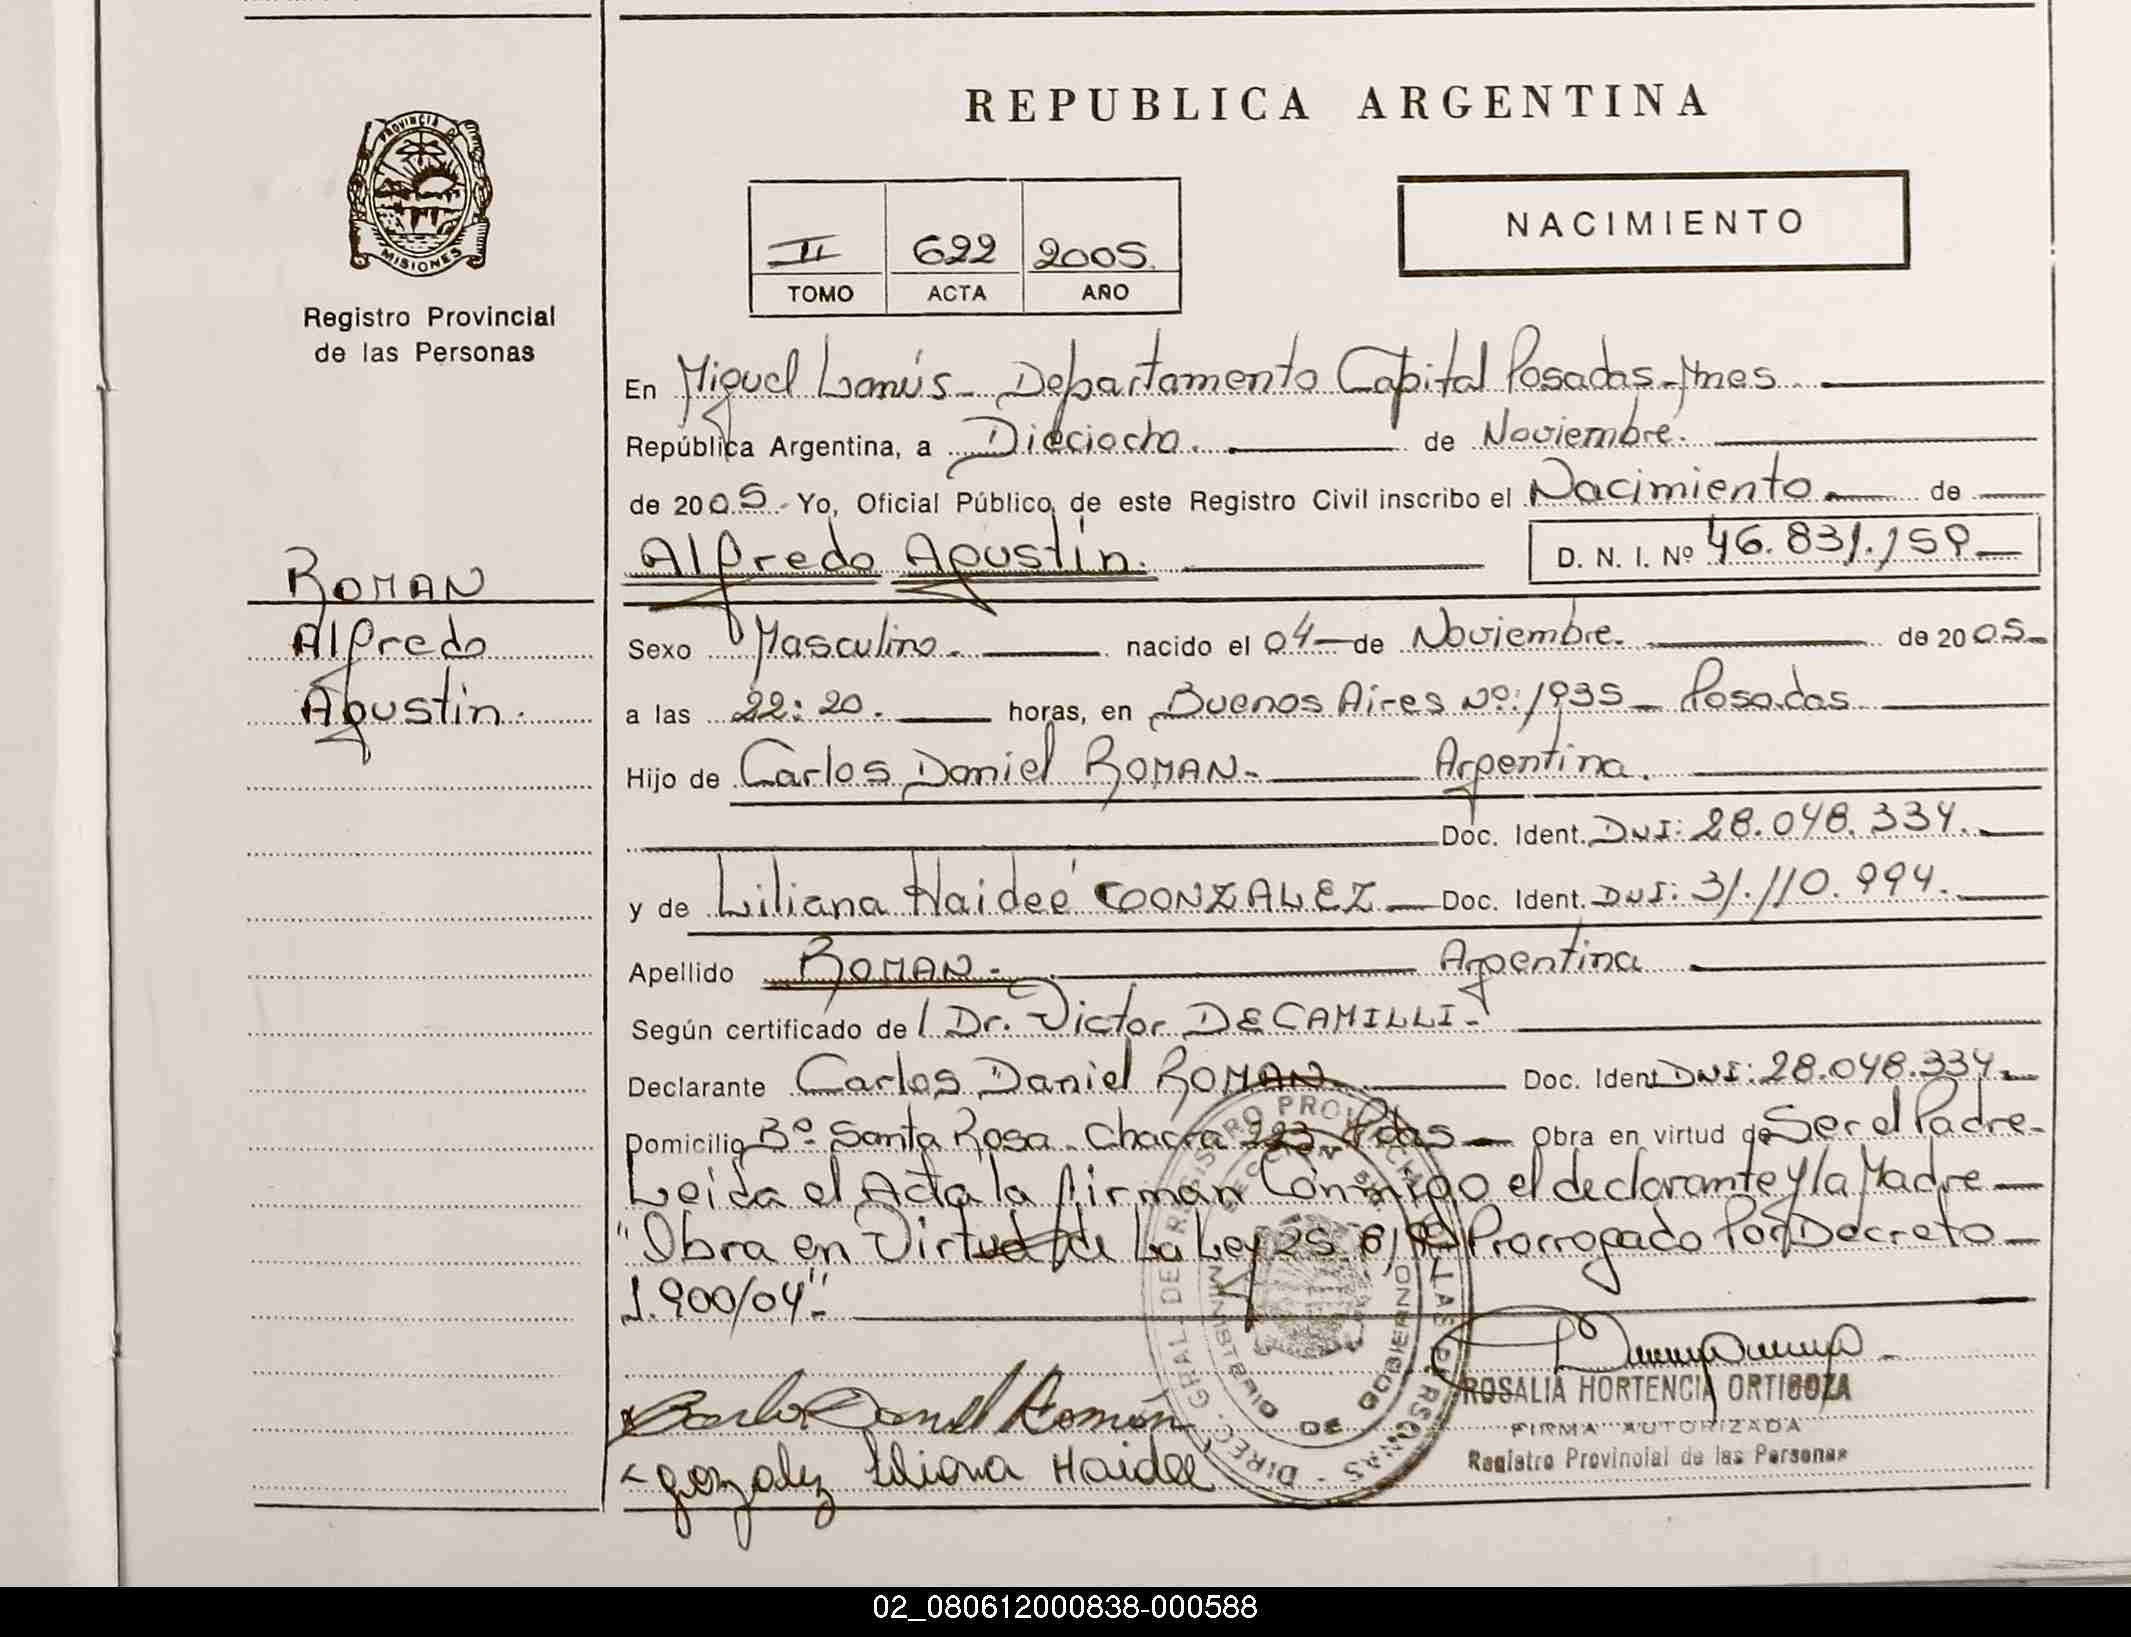 REPUBLICA ARGENTINA
PROVINCIA DE
MISIONES
Registro Provincial
de las Personas
NACIMIENTO
II 622 2005.
TOMO ACTA AÑO
En Miguel Lanús - Departamento Capital Posadas - Mnes
República Argentina, a Dieciocho. de Noviembre.
de 2005.- Yo, Oficial Público, de este Registro Civil inscribo el Nacimiento de
Alfredo Agustin. D. N. I. Nº 46.831.159
ROMAN
Alfredo
Agustin.
Sexo Masculino. nacido el 04 de Noviembre. de 2005
a las 22:20. horas, en Buenos Aires Nº: 1935 - Posadas
Hijo de Carlos Daniel ROMAN - Argentina.
Doc. Ident. DNI: 28.048.334.
y de Liliana Haideé GONZALEZ Doc. Ident. DNI: 31.110.994.
Apellido ROMAN - Argentina
Según certificado de l Dr. Victor DECAMILLI -
Declarante Carlos Daniel ROMAN Doc. Ident DNI: 28.048.334.
Domicilio Bº Santa Rosa - Chacra 223 Pdas - Obra en virtud de Ser el Padre -
Leida el Acta la firman Conmigo el declarante y la Madre
"Obra en Virtud de La Ley 25.819 Prorrogado Por Decreto
1.900/04"-
DIREC. GRAL. DE REGISTRO PROVINCIAL DE LAS PERSONAS
MINISTERIO DE GOBIERNO
ROSALIA HORTENCIA ORTIGOZA
FIRMA AUTORIZADA
Registro Provincial de las Personas
Carlos Daniel Román
gonzalez liliana Haidee
02_080612000838-000588